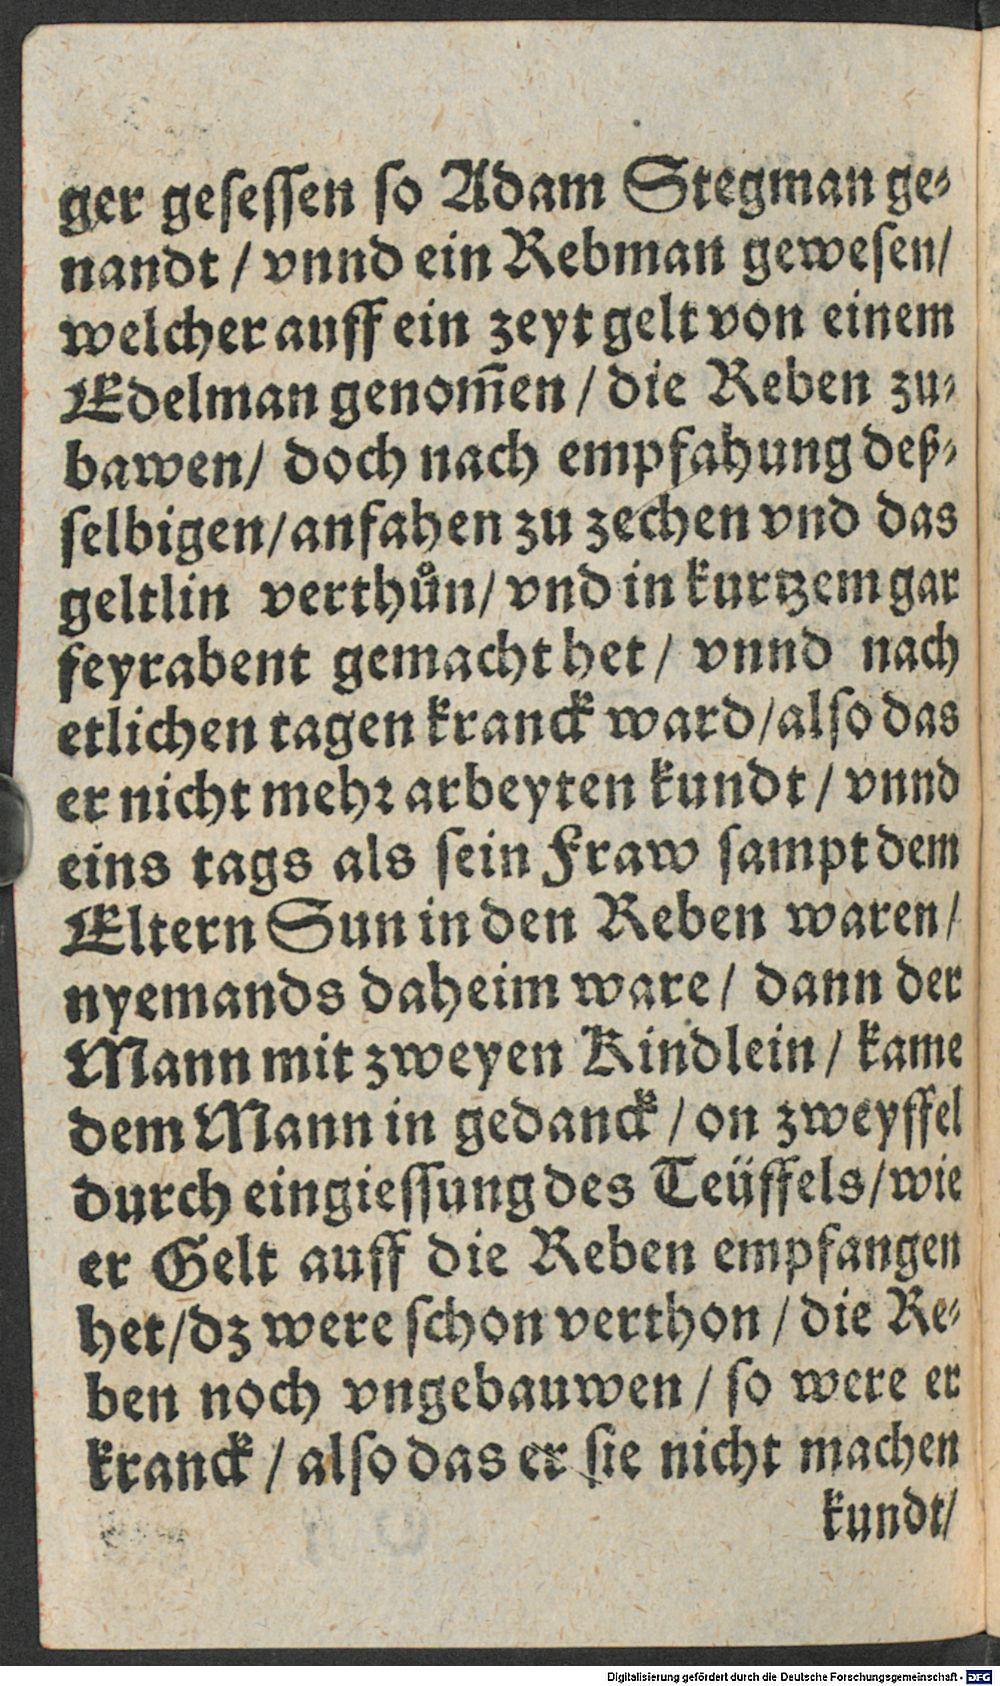 ger gesessen so Adam Stegman ge-
nandt / vnnd ein Rebman gewesen/
welcher auff ein zeyt gelt von einem
Edelman genom̃en / die Reben zu-
bawen/ doch nach empfahung deß-
selbigen/ anfahen zu zechen vnd das
geltlin verthůn/ vnd in kurtzem gar
feyrabent gemacht het / vnnd nach
etlichen tagen kranck ward/ also das
er nicht mehr arbeyten kundt / vnnd
eins tags als sein Fraw sampt dem
Eltern Sun in den Reben waren/
nyemands daheim ware / dann der
Mann mit zweyen Kindlein / kame
dem Mann in gedanck / on zweyffel
durch eingiessung des Teüffels/ wie
er Gelt auff die Reben empfangen
het/ dz were schon verthon / die Re-
ben noch vngebauwen / so were er
kranck / also das er sie nicht machen
kundt/
Digitalisierung gefördert durch die Deutsche Forschungsgemeinschaft - DFG